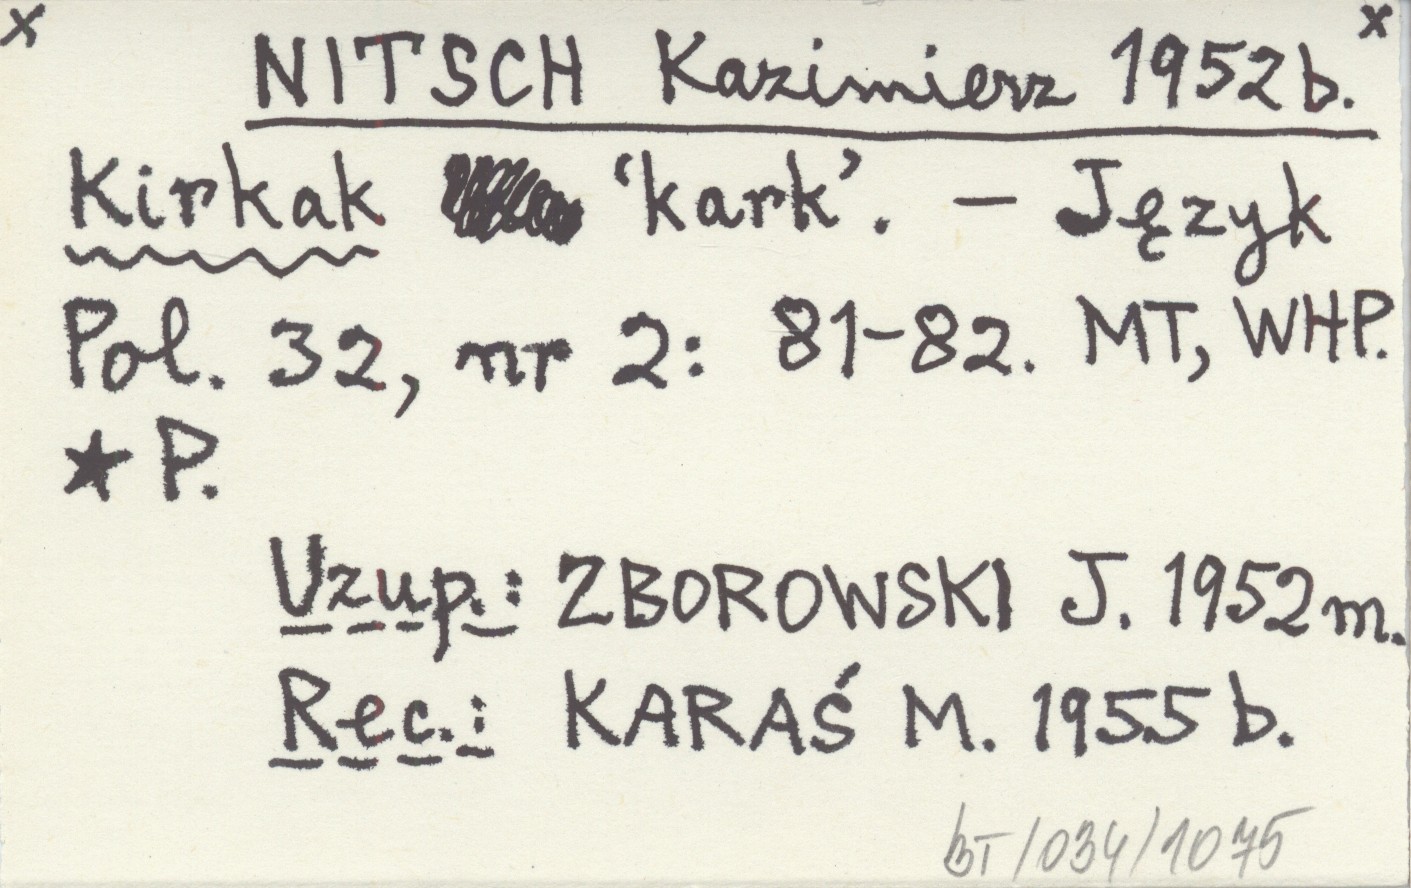 x x
NITSCH Kazimierz 1952b.
Kirkak 'kark'. – Język
Pol. 32, nr 2: 81–82. MT, WHP.
★ P.
Uzup.: ZBOROWSKI J. 1952m.
Rec.: KARAŚ M. 1955b.
BT/034/1075